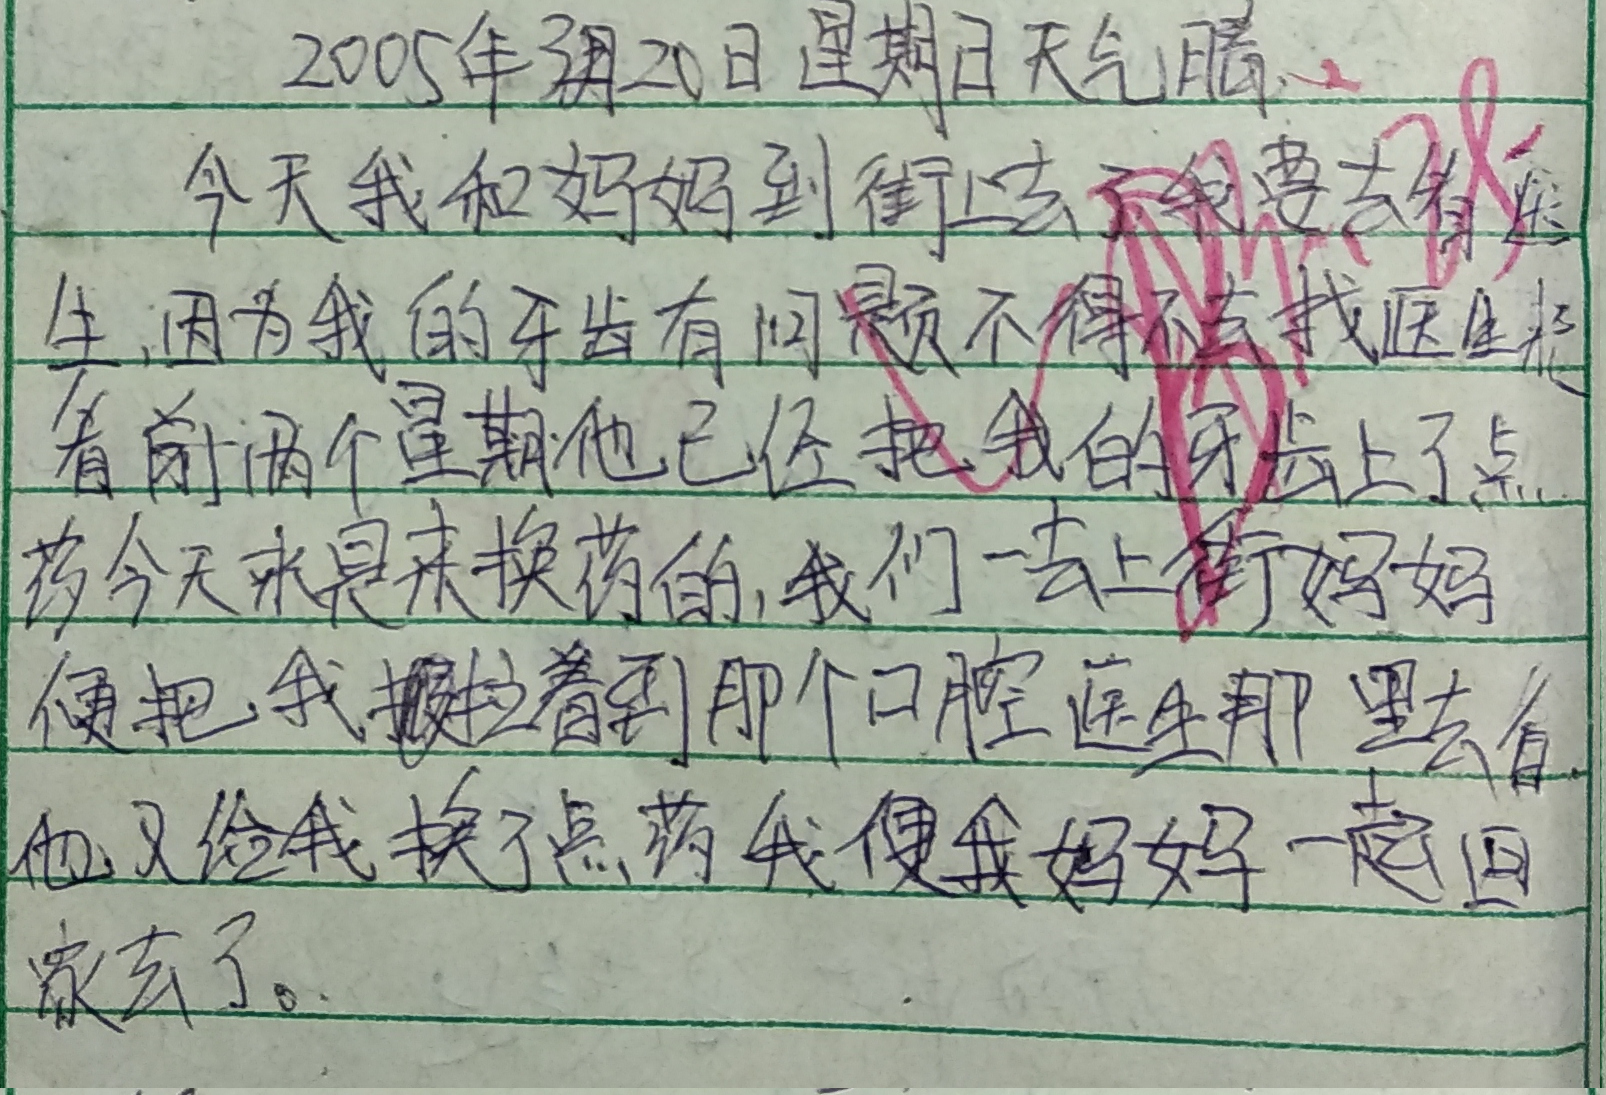 2005年3月20日星期日天气晴
今天我和妈妈到街上去了我要去看医
生,因为我的牙齿有问题不得不去找医生
看前两个星期他已经把我的牙齿上了点
药今天来是来换药的,我们一去上街妈妈
便把我拉着到那个口腔医生那里去看.
他又给我换了点药我便我妈妈一起回
家去了。